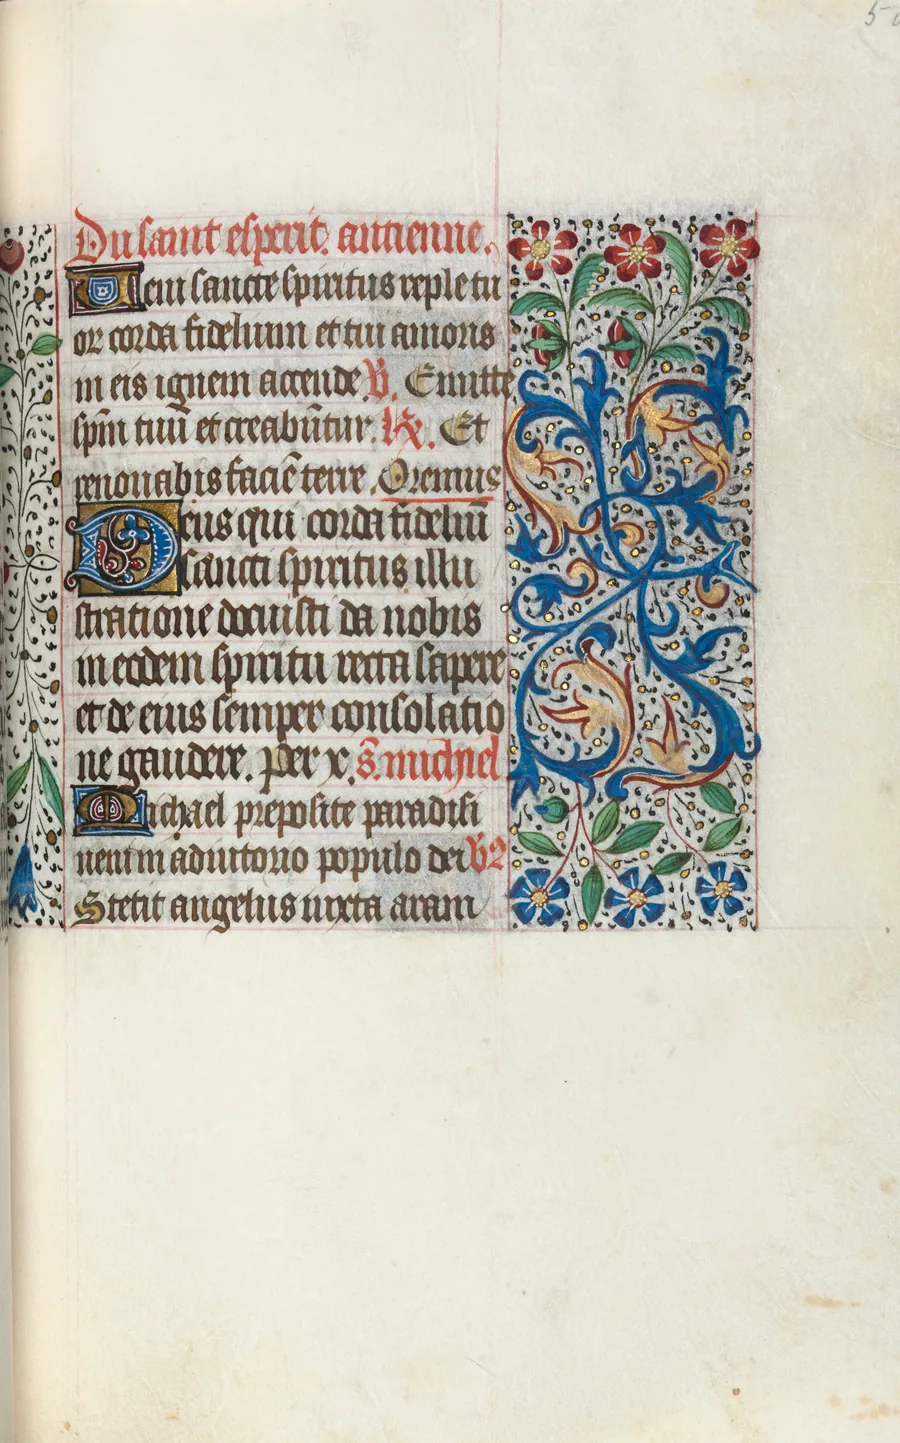 Du saint esperit. antienne.
Ueni sancte spiritus reple tu
or corda fidelium et tui amoris
in eis ignem accende. V. Emitte
sp̄m tuū et creabūtur. R. Et
renouabis faciē terre. Oremus
Deus qui corda fideliū
sancti spiritus illu
stratione docuisti da nobis
in eodem spiritu recta sapere
et de eius semper consolatio
ne gaudere. Per x. S. michiel
Michael preposite paradisi
ueni in adiutorio populo dei V2
Stetit angelus iuxta aram